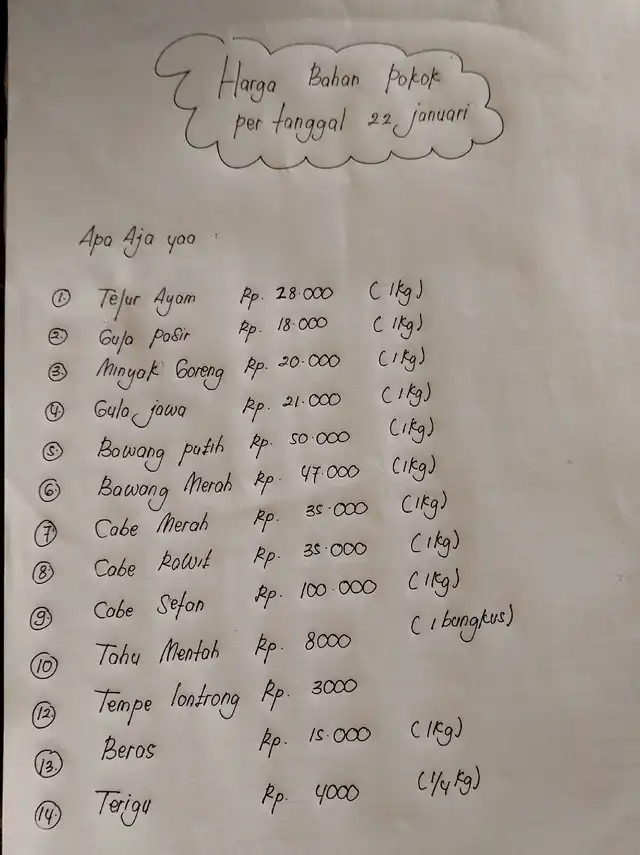 Harga Bahan Pokok
per tanggal 22 januari
Apa Aja yaa :
1. Telur Ayam Rp. 28.000 (1kg)
2. Gula pasir Rp. 18.000 (1kg)
3. Minyak Goreng Rp. 20.000 (1kg)
4. Gula jawa Rp. 21.000 (1kg)
5. Bawang putih Rp. 50.000 (1kg)
6. Bawang Merah Rp. 47.000 (1kg)
7. Cabe Merah Rp. 35.000 (1kg)
8. Cabe Rawit Rp. 35.000 (1kg)
9. Cabe Setan Rp. 100.000 (1kg)
10 Tahu Mentah Rp. 8000 (1 bungkus)
12. Tempe lontrong Rp. 3000
13. Beras Rp. 15.000 (1kg)
14. Terigu Rp. 4000 (1/4 kg)